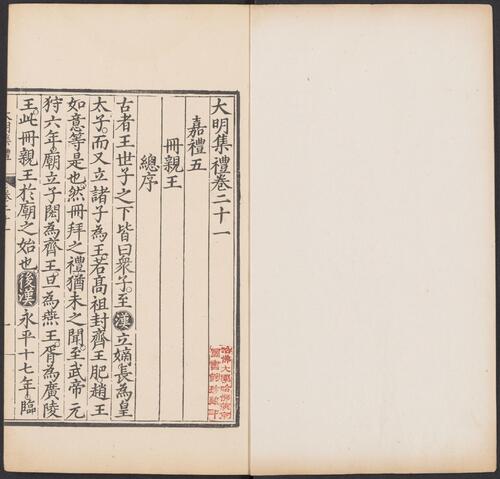 大明集禮卷二十一
嘉禮五
冊親王
總序
古者王世子之下皆曰衆子。至漢立嫡長為皇
太子。而又立諸子為王。若高祖封齊王肥趙王
如意等是也。然冊拜之禮猶未之聞。至武帝元
狩六年。廟立子閎為齊王。旦為燕王。胥為廣陵
王。此冊親王於廟之始也。後漢永平十七年。臨